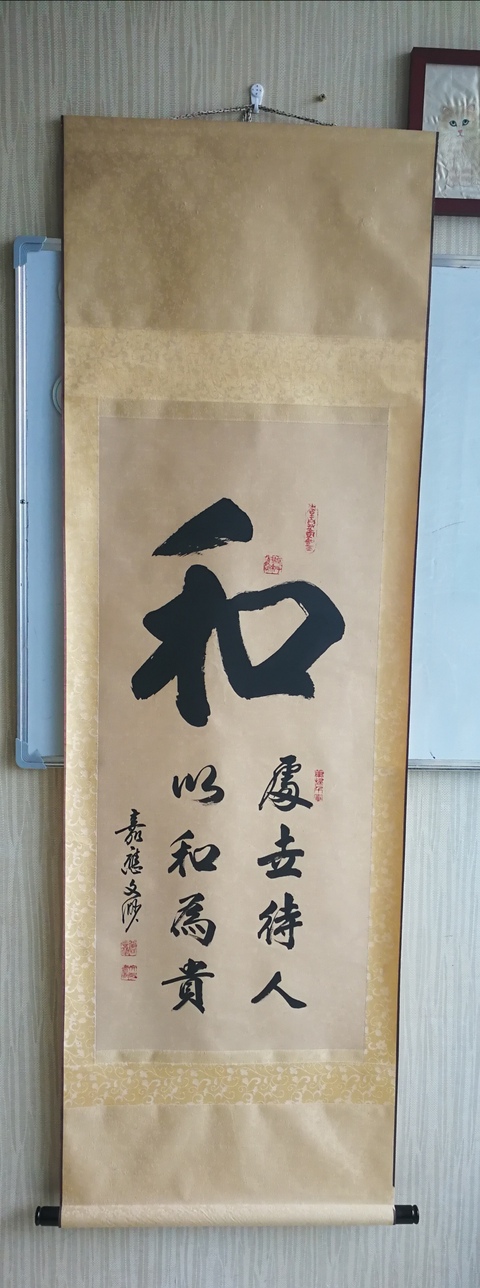 和
處世待人
以和為貴
嘉應文㵟